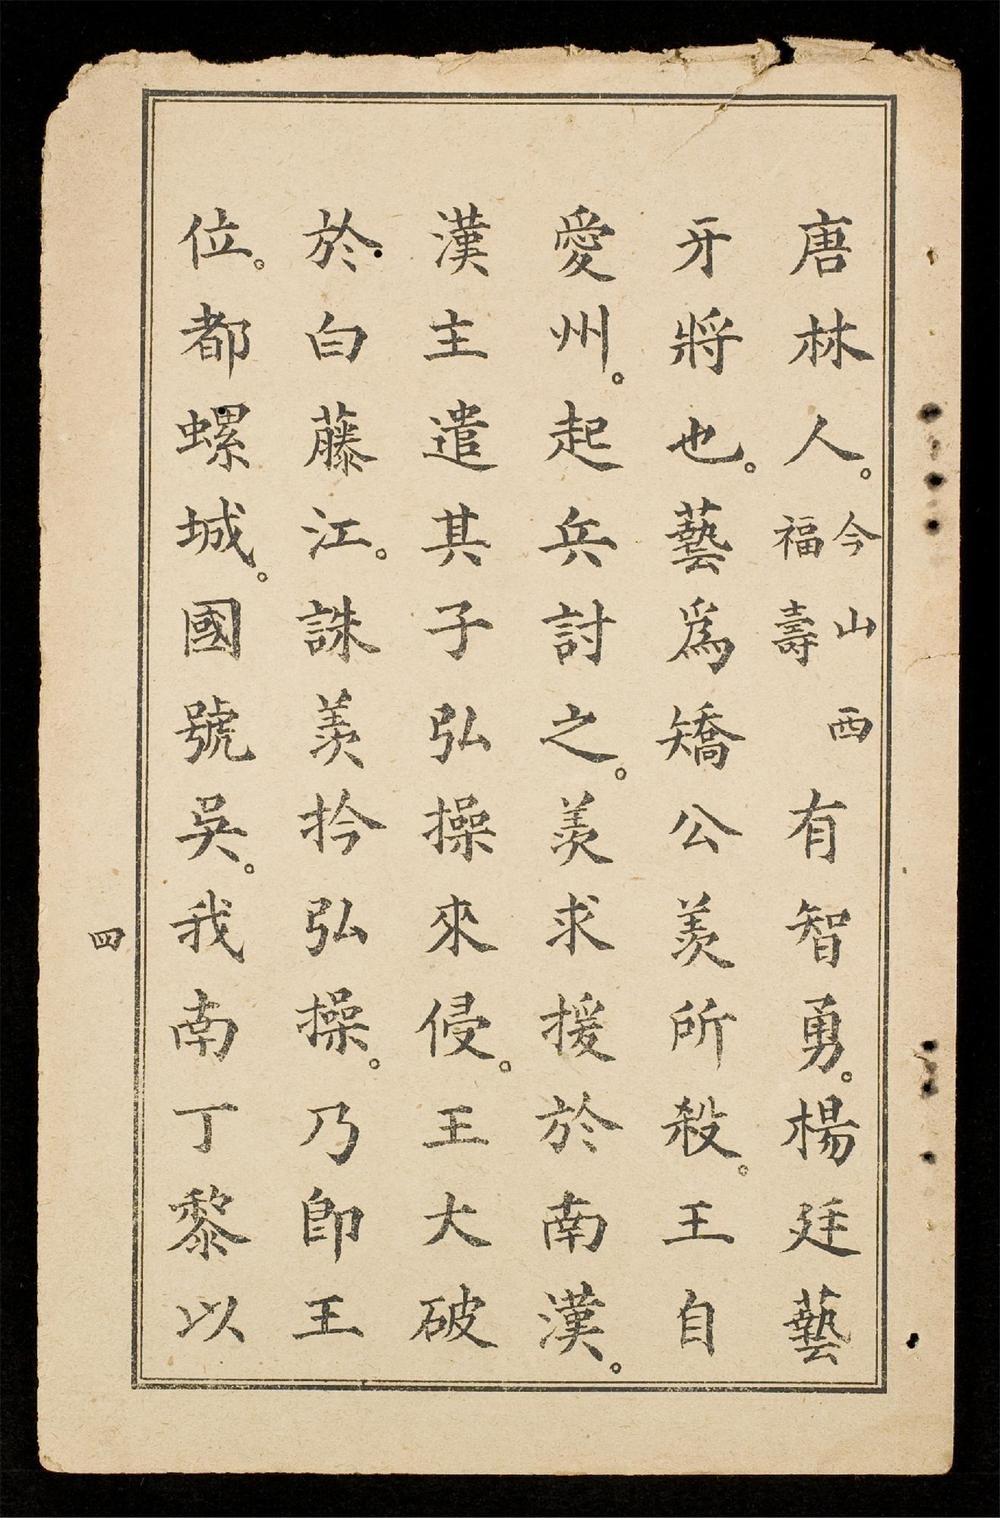 唐林人。今山西福壽有智勇。楊廷藝
牙將也。藝爲矯公羨所殺。王自
愛州。起兵討之。羨求援於南漢。
漢主遣其子弘操來侵。王大破
於白藤江。誅羨拎弘操。乃即王
位。都螺城。國號吳。我南丁黎以
四